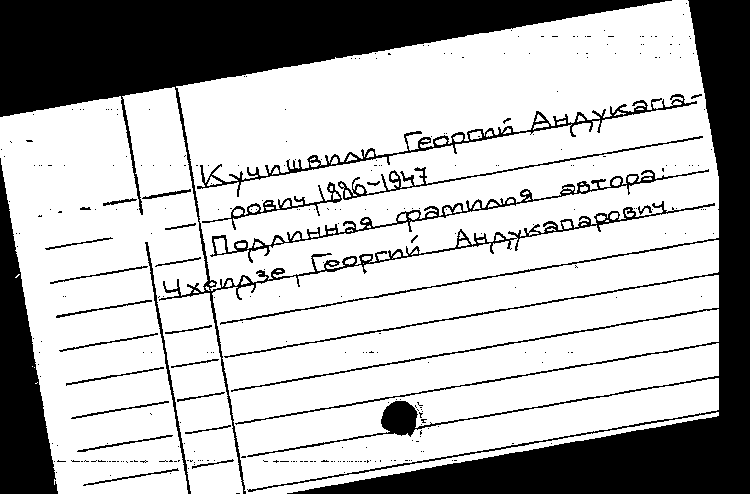 Кучишвили, Георгий Андукапа-
рович, 1886-1947
Подлинная фамилия автора:
Чхеидзе, Георгий Андукапарович.